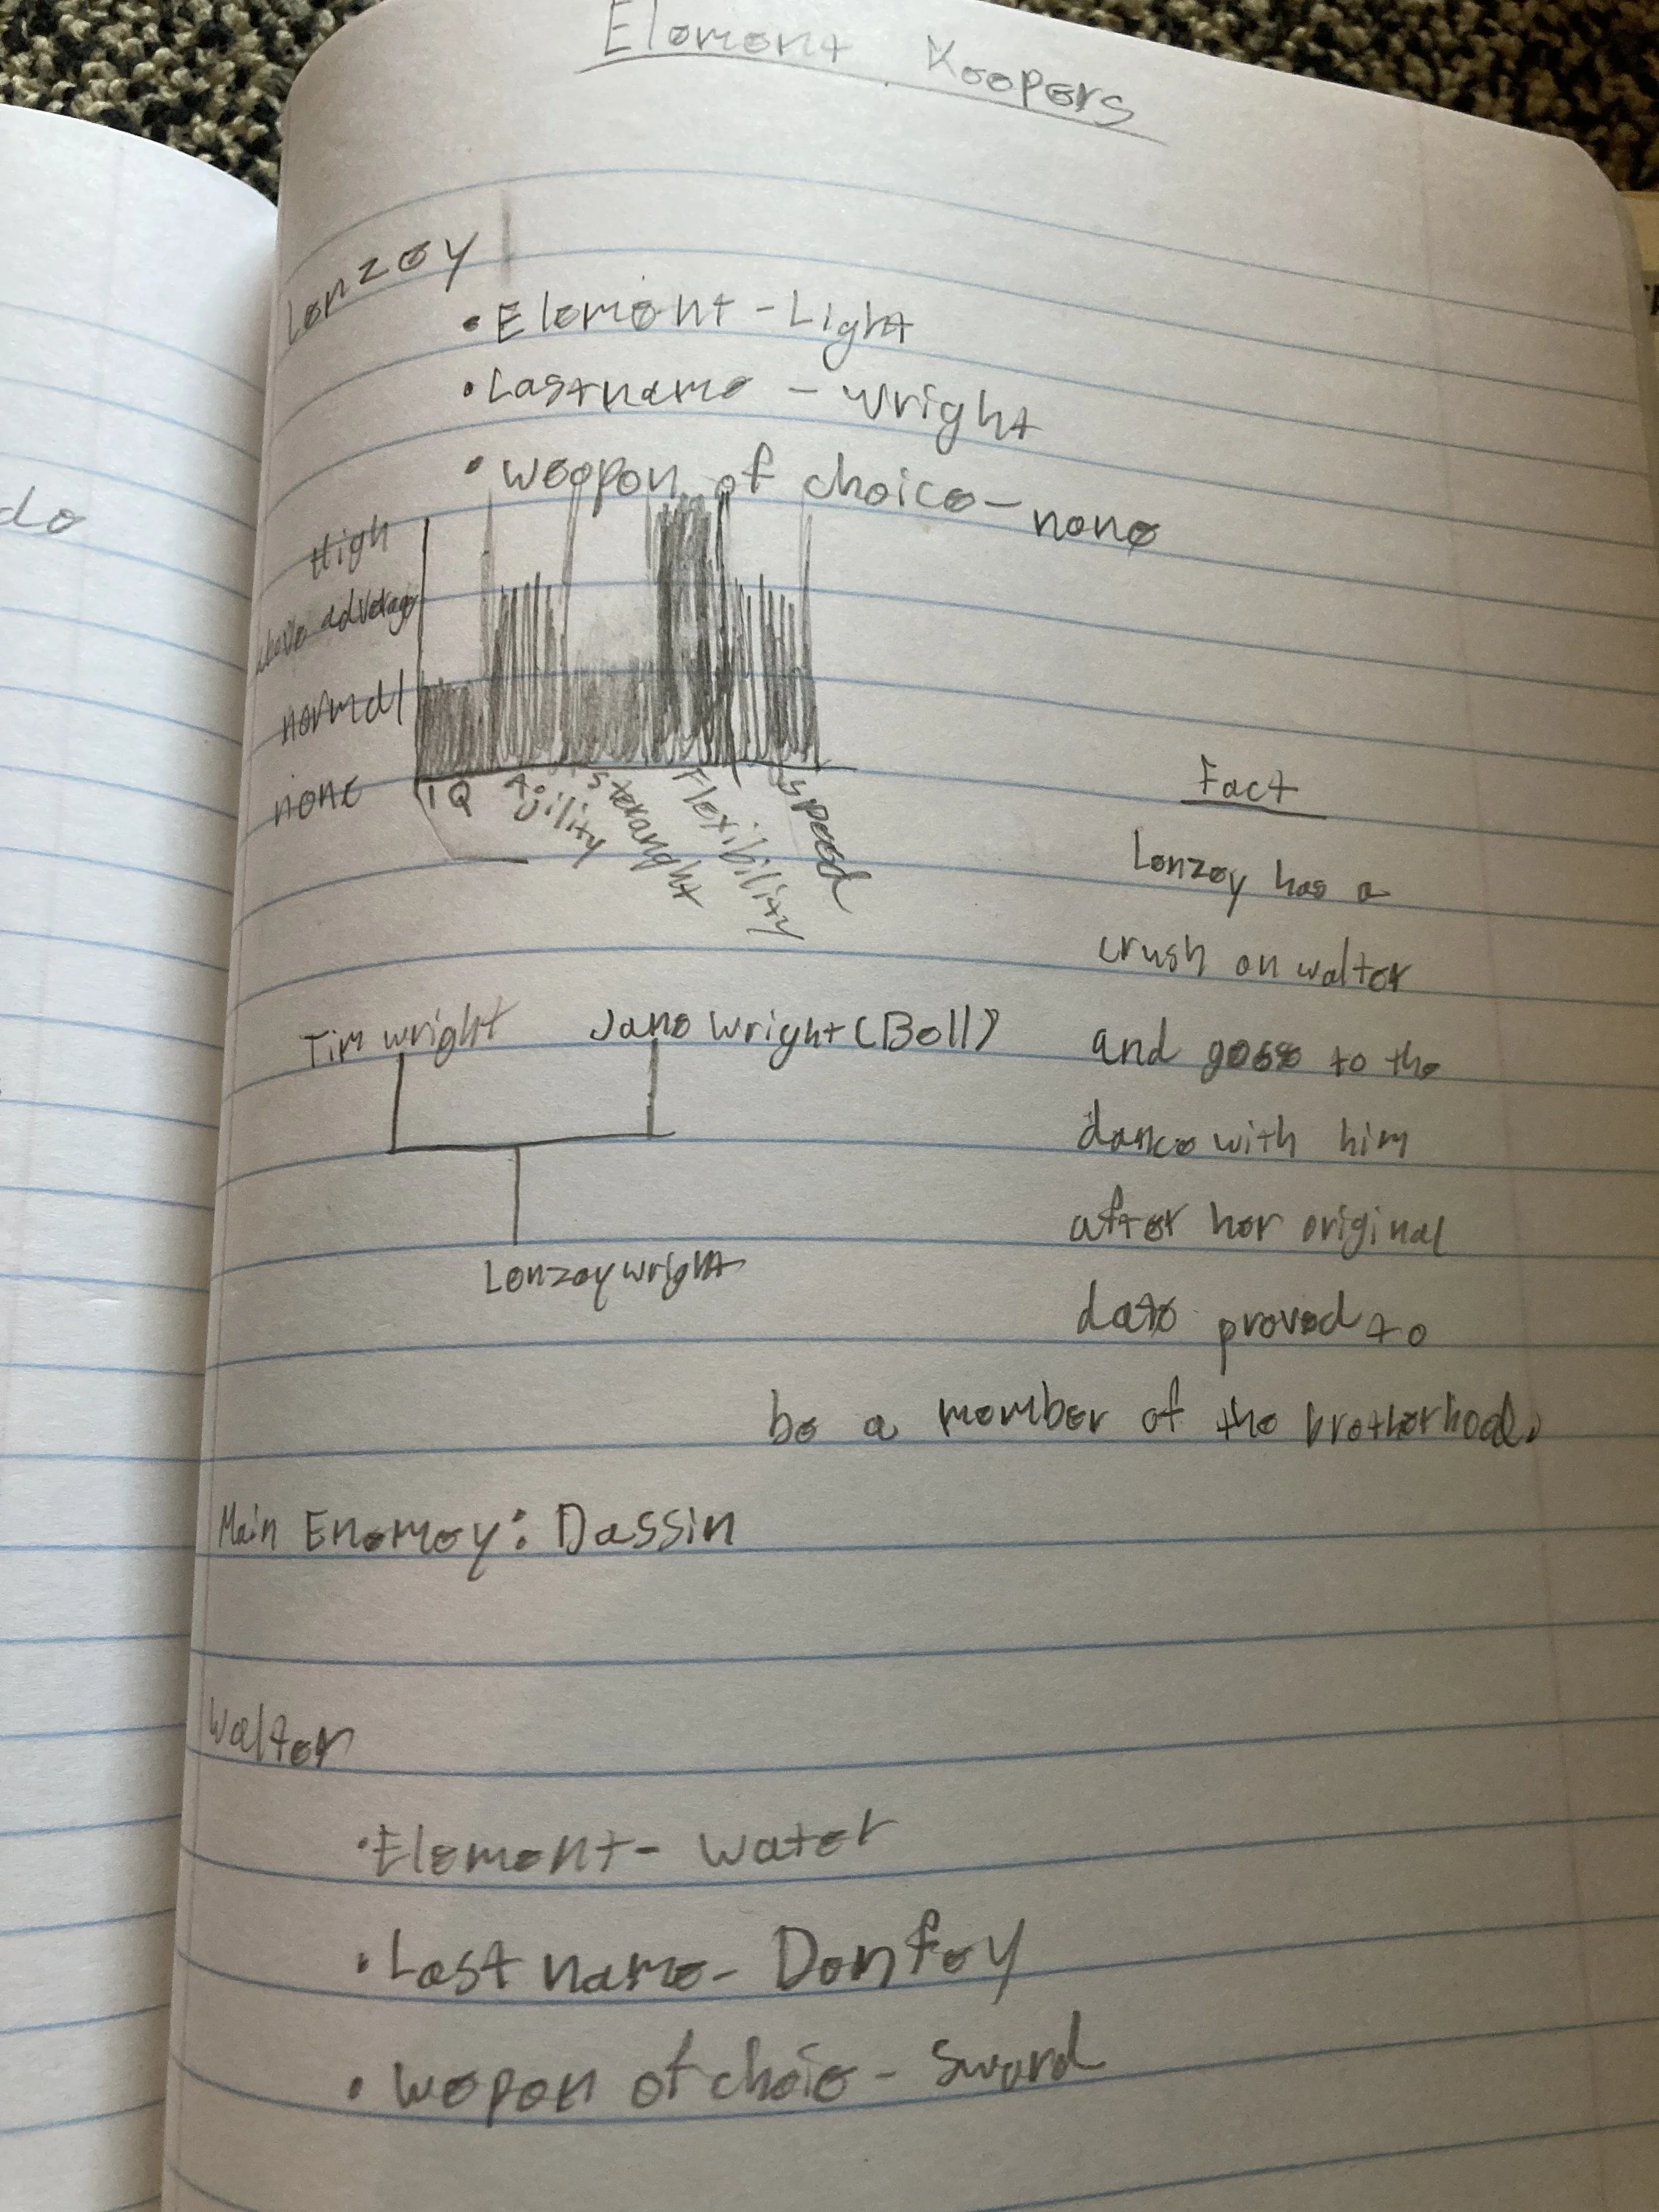 Element Keepers
Lenzey
• Element - Light
• Lastname - wright
• weopon of choice - none
High
above adverage
normal
none
IQ
Agility
steranght
Flexibility
speed
Fact
Lenzey has a
crush on walter
and goes to the
dance with him
after her original
date proved to
be a member of the brotherhood.
Tim wright
Jane wright (Bell)
Lenzey wright
Main Enemey: Dassin
Walter
• Element - water
• Last name - Denfey
• wepon of choie - sword